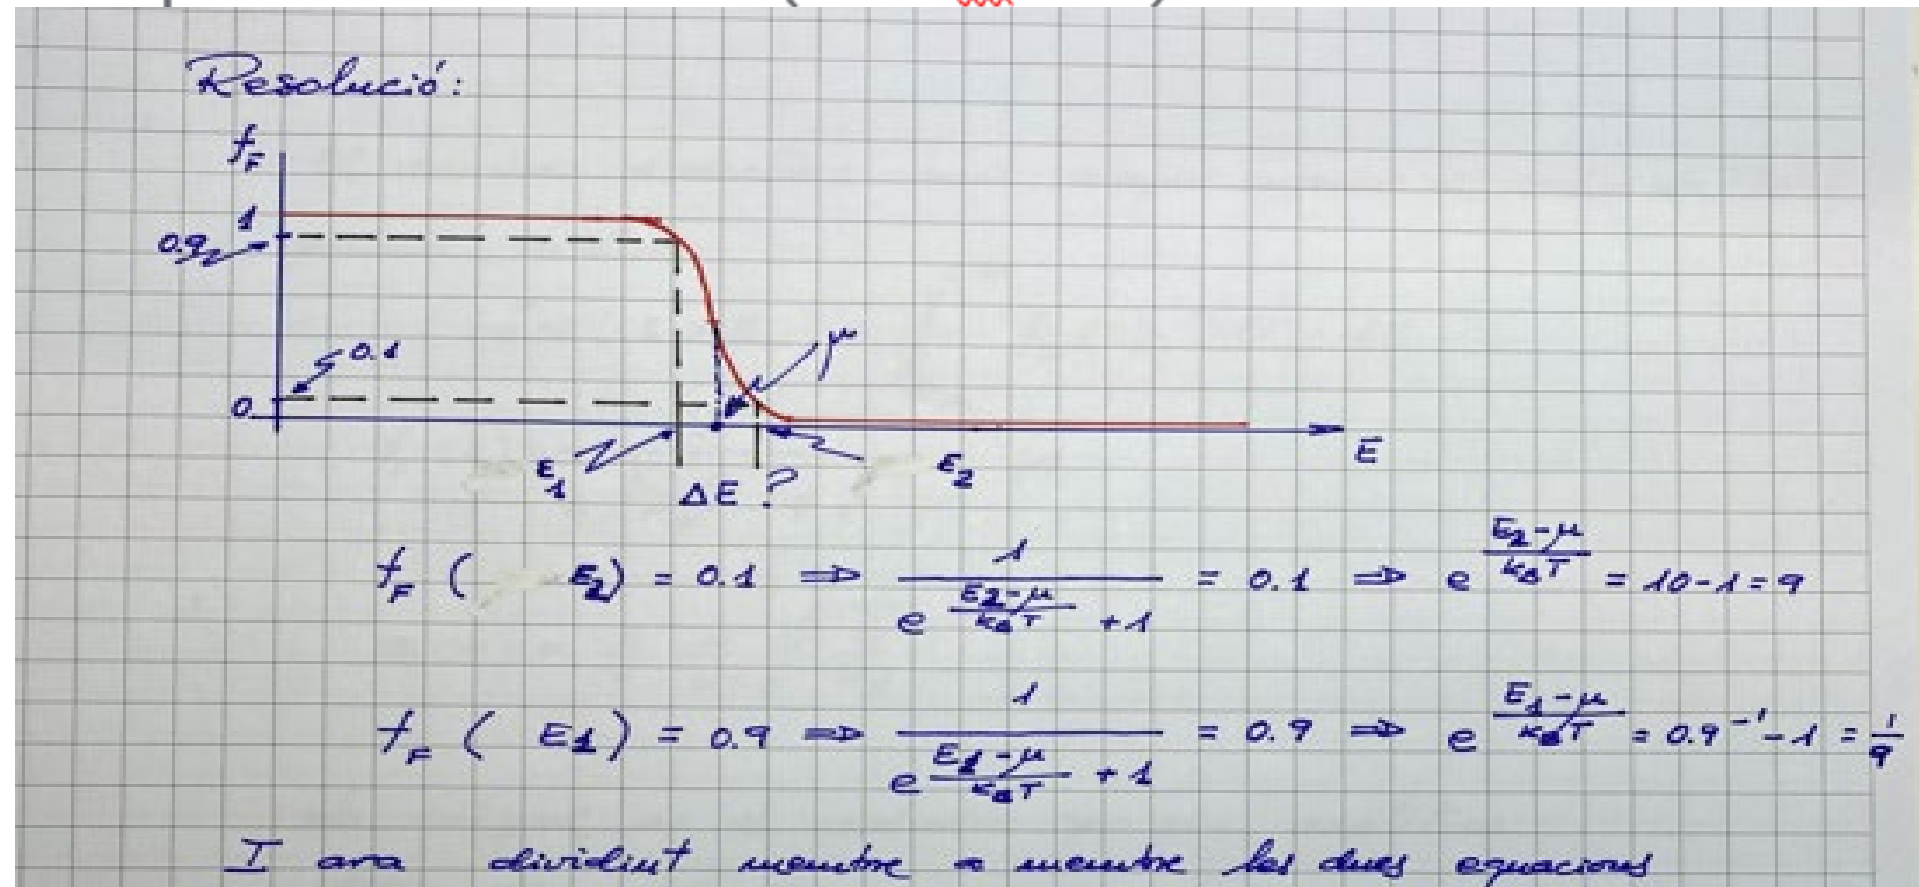 Resolució:
f_F
1
0.9
0.1
μ
0
E
E_1
E_2
ΔE ?
f_F ( E_2) = 0.1 ⇒ 1 / (e^((E_2-μ)/(k_BT)) + 1) = 0.1 ⇒ e^((E_2-μ)/(k_BT)) = 10-1 = 9
f_F ( E_1) = 0.9 ⇒ 1 / (e^((E_1-μ)/(k_BT)) + 1) = 0.9 ⇒ e^((E_1-μ)/(k_BT)) = 0.9^-1 - 1 = 1/9
I ara dividint membre a membre les dues equacions